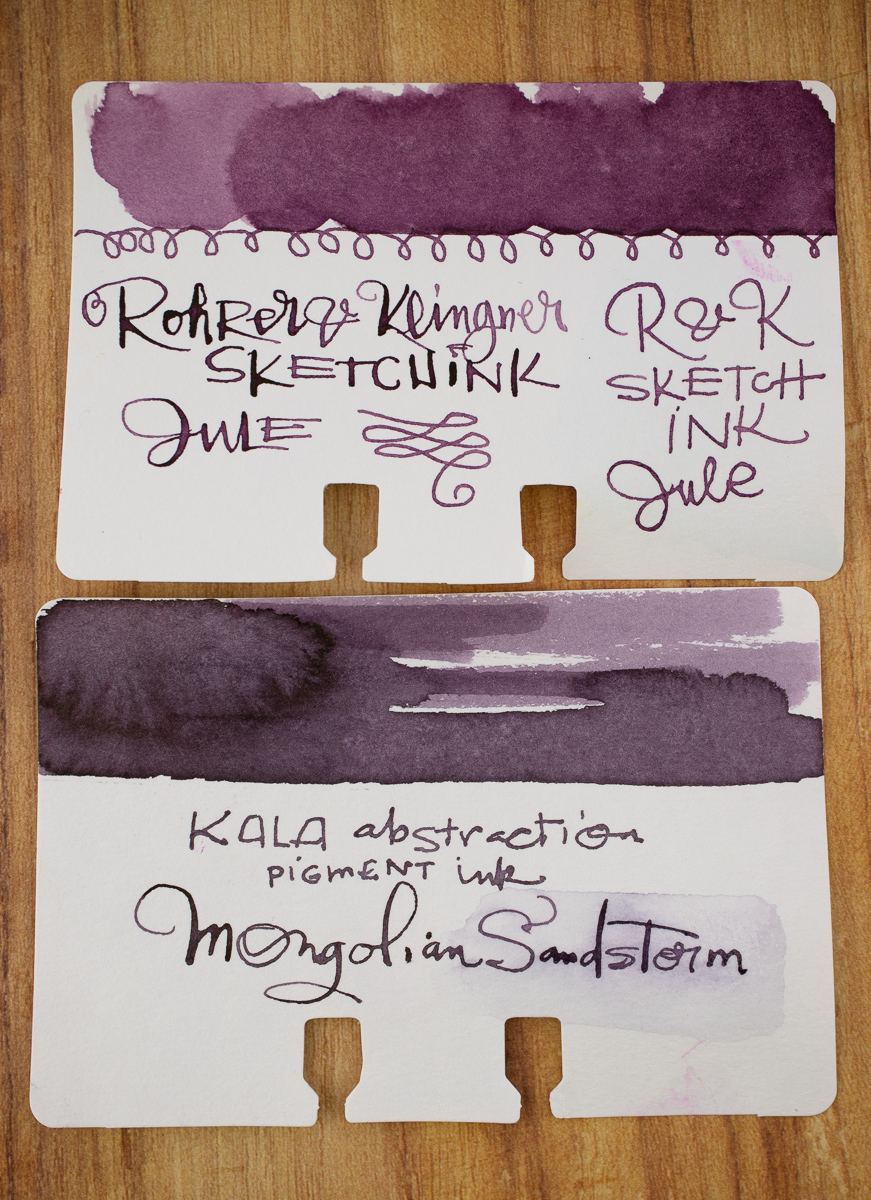 Rohrer & Klingner
SKETCHINK
JULE
R&K
SKETCH
INK
Jule
KALA abstraction
PIGMENT ink
Mongolian Sandstorm